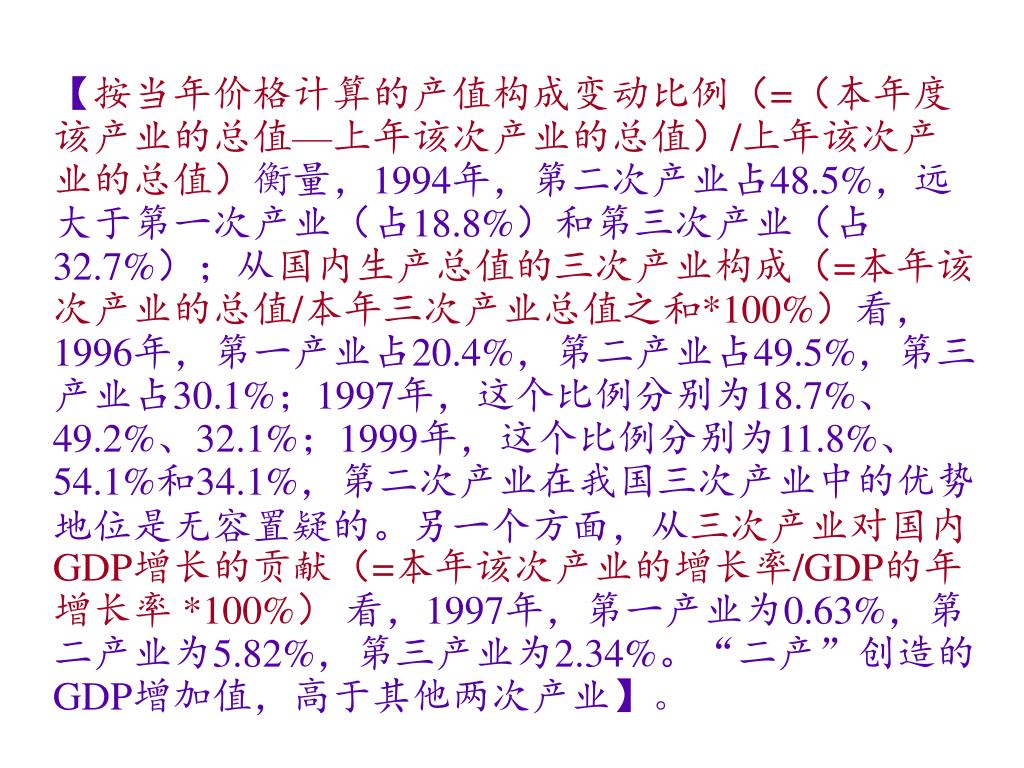 【按当年价格计算的产值构成变动比例（=（本年度
该产业的总值—上年该次产业的总值）/上年该次产
业的总值）衡量，1994年，第二次产业占48.5%，远
大于第一次产业（占18.8%）和第三次产业（占
32.7%）；从国内生产总值的三次产业构成（=本年该
次产业的总值/本年三次产业总值之和*100%）看，
1996年，第一产业占20.4%，第二产业占49.5%，第三
产业占30.1%；1997年，这个比例分别为18.7%、
49.2%、32.1%；1999年，这个比例分别为11.8%、
54.1%和34.1%，第二次产业在我国三次产业中的优势
地位是无容置疑的。另一个方面，从三次产业对国内
GDP增长的贡献（=本年该次产业的增长率/GDP的年
增长率 *100%） 看，1997年，第一产业为0.63%，第
二产业为5.82%，第三产业为2.34%。“二产”创造的
GDP增加值，高于其他两次产业】。